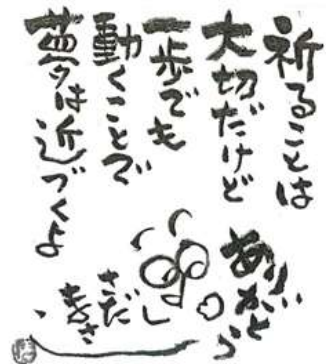 祈ることは
大切だけど
一歩でも
動くことで
夢は近づくよ
ありがとう
さだ
まさし